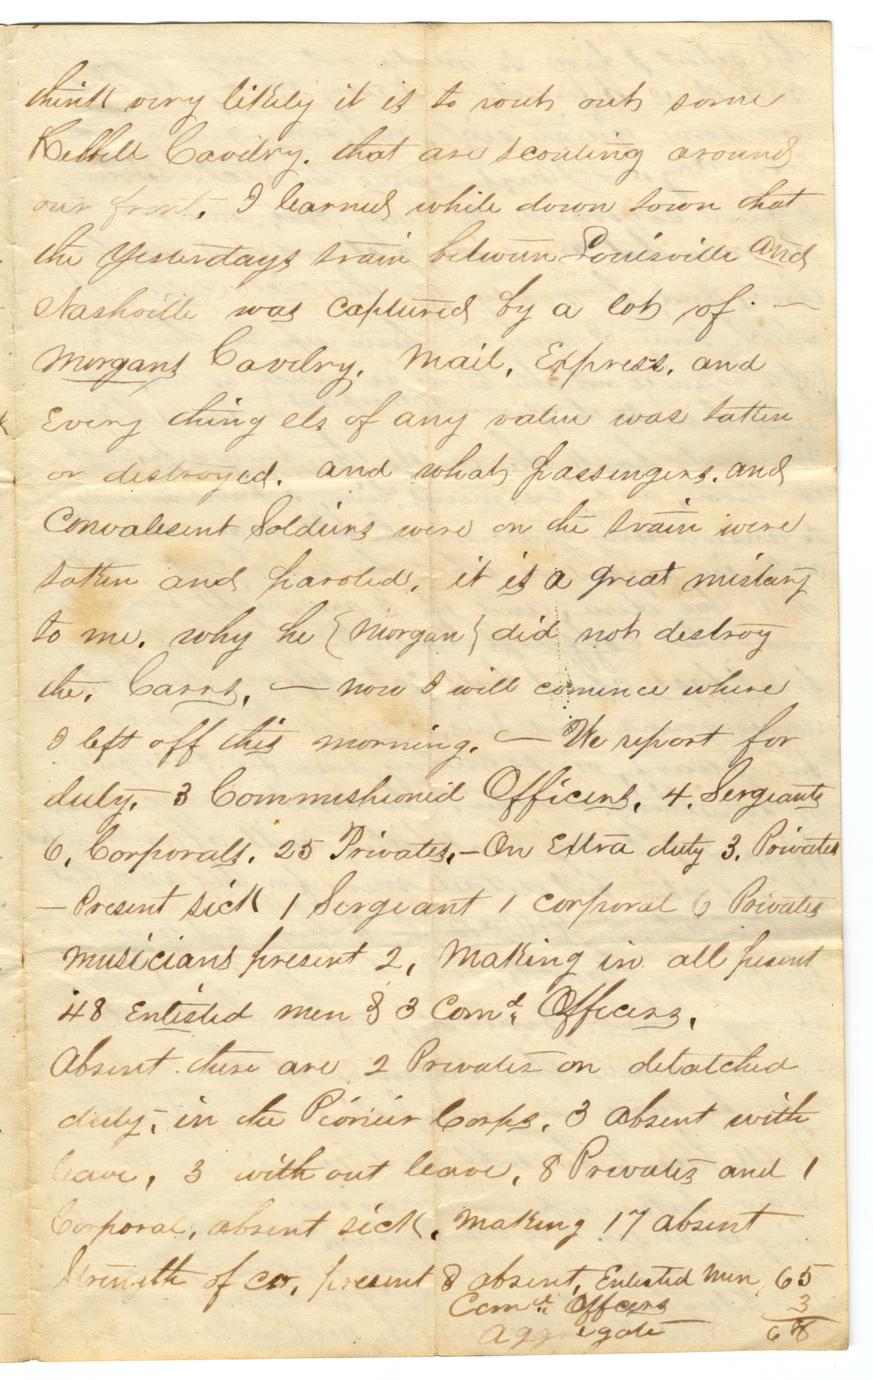 think very likely it is to routh outh some
Rebbell Cavilry. that are scouting around
our front. I learned while down town that
the Yesterdays train betwen Louisville and
Nashville was captured by a loth of. —
Morgans Cavilry. Mail, Express. and
Every thing els of any value was taken
or destroyed. and what passengers. and
Convalesent Soldiers were on the train were
taken and paroled. it is a great mistary
to me. why he {Morgan} did not destroy
the. Carrs. — now I will comince where
I left off this morning. — We report for
duty. 3 Commishioned Officers. 4. Sergeants
6. Corporals. 25 Privates. — On Extra duty 3. Privates
— Present sick 1 Sergeant 1 corporal 6 Privates
musicians present 2, Making in all pesent
48 Enlisted men & 3 Comd. Officers.
Absent there are 2 Privates on detatched
duty, in the Pionier Corps. 3 absent with
leave, 3 with out leave, 8 Privates and 1
Corporal, absent sick. Making 17 absent
Strength of co. present & absent, Enlisted Men 65
Comd. Officers 3
Aggregate 68